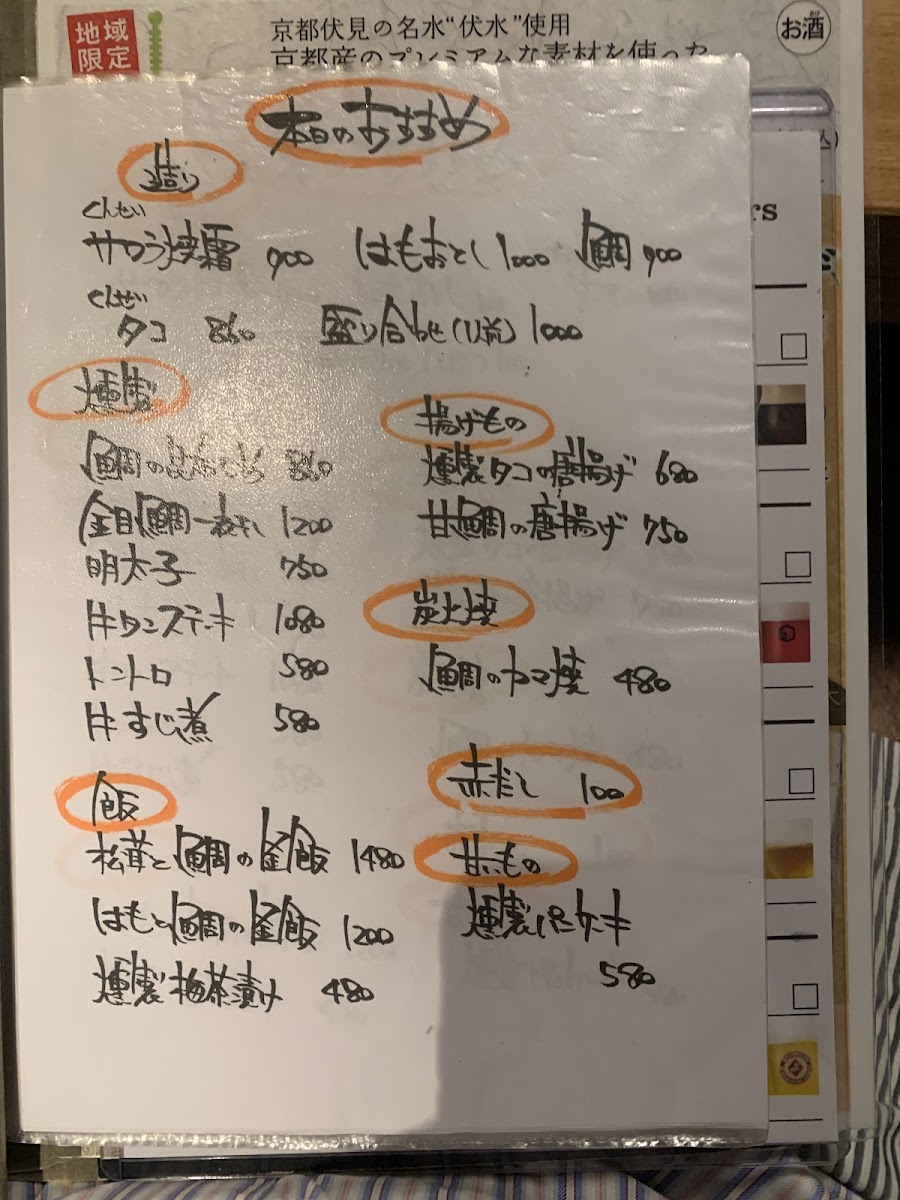 地域限定
京都伏見の名水“伏水”使用
京都産のプレミアムな素材を使った
お酒
本日のおすすめ
造り
くんせい
サワラ焼霜 900 はもおとし 1000 鯛 900
くんせい
タコ 860 盛り合わせ(1人前) 1000
燻製
鯛の昆布じめ 860
金目鯛一夜干し 1200
明太子 750
牛タンステーキ 1080
トントロ 580
牛すじ煮 580
揚げもの
燻製タコの唐揚げ 680
甘鯛の唐揚げ 750
炭火焼
鯛のカマ焼 480
飯
松茸と鯛の釜飯 1480
はもと鯛の釜飯 1200
燻製梅茶漬け 480
赤だし 100
甘いもの
燻製バターケーキ
580
rs